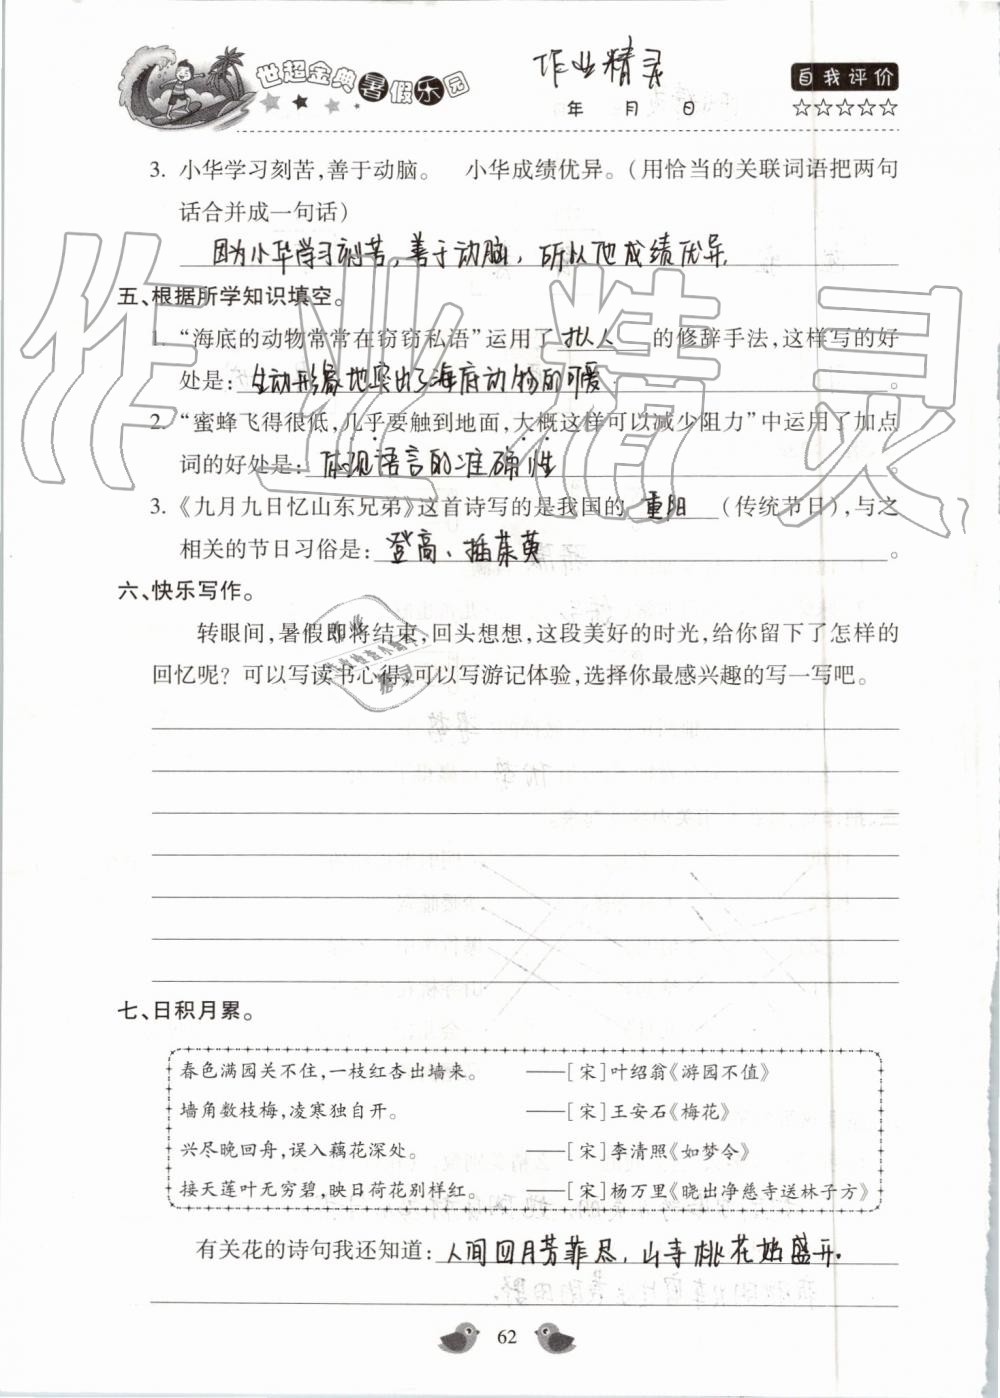 世超金典暑假乐园
作业精灵
自我评价
年 月 日
☆☆☆☆☆
3. 小华学习刻苦,善于动脑。 小华成绩优异。(用恰当的关联词语把两句
话合并成一句话)
因为小华学习刻苦,善于动脑,所以他成绩优异.
五、根据所学知识填空。
1. “海底的动物常常在窃窃私语”运用了 拟人 的修辞手法,这样写的好
处是: 生动形象地突出了海底动物的可爱 。
2. “蜜蜂飞得很低,几乎要触到地面,大概这样可以减少阻力”中运用了加点
词的好处是: 体现语言的准确性 。
3.《九月九日忆山东兄弟》这首诗写的是我国的 重阳 (传统节日),与之
相关的节日习俗是: 登高、插茱萸 。
六、快乐写作。
转眼间,暑假即将结束,回头想想,这段美好的时光,给你留下了怎样的
回忆呢? 可以写读书心得,可以写游记体验,选择你最感兴趣的写一写吧。
七、日积月累。
春色满园关不住,一枝红杏出墙来。 ——[宋]叶绍翁《游园不值》
墙角数枝梅,凌寒独自开。 ——[宋]王安石《梅花》
兴尽晚回舟,误入藕花深处。 ——[宋]李清照《如梦令》
接天莲叶无穷碧,映日荷花别样红。 ——[宋]杨万里《晓出净慈寺送林子方》
有关花的诗句我还知道: 人间四月芳菲尽,山寺桃花始盛开.
62
作业精灵